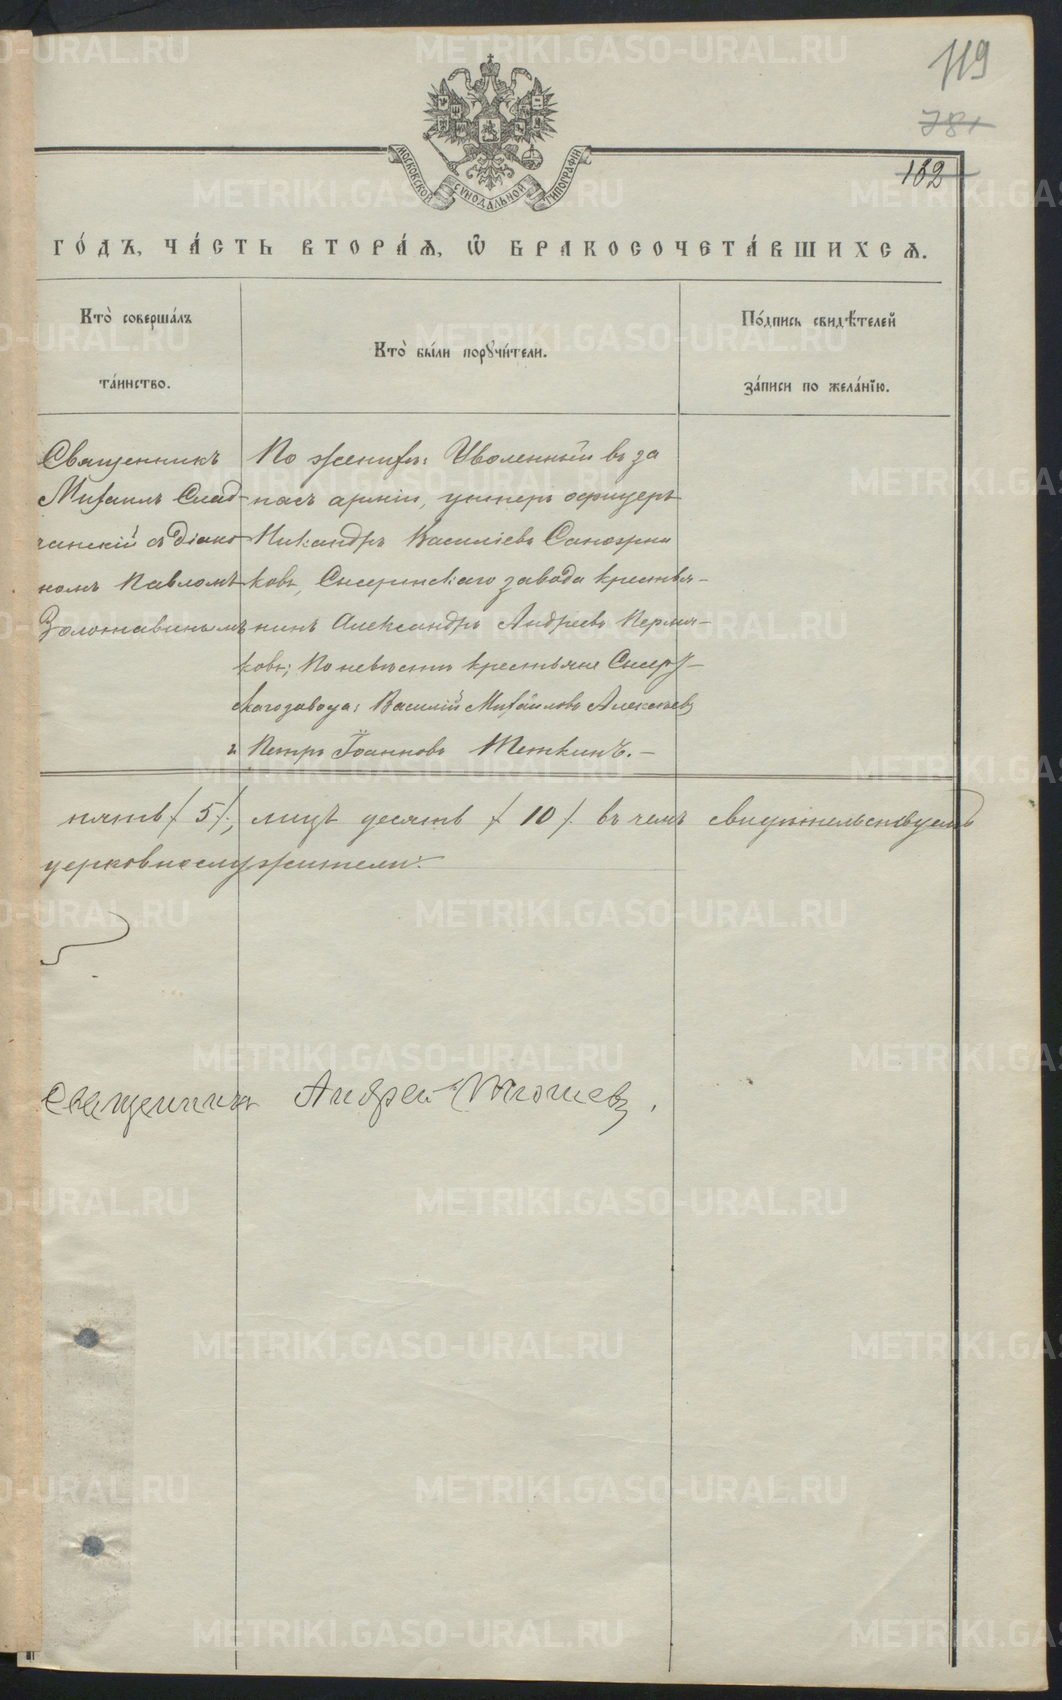 119
781
182
МОСКОВСКОЙ СѴНОДАЛЬНОЙ ТИПОГРАФІИ
ГО́ДЪ, ЧА́СТЬ ВТОРА́Ѧ, Ѽ БРАКОСОЧЕТА́ВШИХСѦ.
Кто̀ соверша́лъ
та́инство.
Кто̀ бы́ли порꙋчи́тели.
По́дпись свидѣ́телей
за́писи по жела́нїю.
Священникъ
Михаилъ Слад-
чанскій съ діако
номъ Павломъ
Золотавинымъ
По женихѣ: Уволенный въ за
пасъ арміи, унтеръ офицеръ
Никандръ Василіевъ Сапожни
ковъ, Сысертскаго завода крестья-
нинъ Александръ Андреевъ Пермя-
ковъ; По невѣстѣ крестьяне Сысерт-
скаго завода: Василій Михайловъ Алексѣевъ
и Петръ Іоанновъ Теткинъ. —
пять / 5 /; лицъ десять / 10 /. въ чемъ свидѣтельствуемъ
церковнослужители:
Священникъ Андрей
METRIKI.GASO-URAL.RU